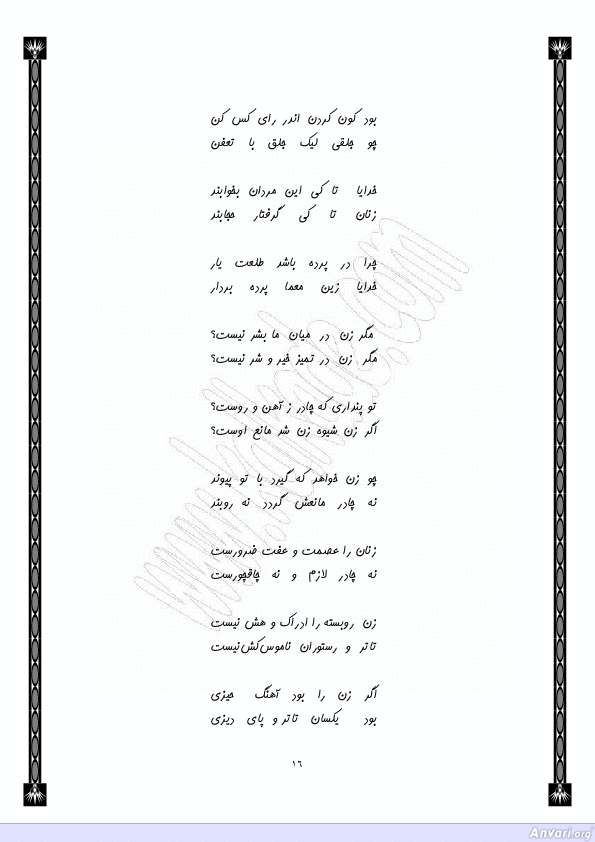 بود کون کردن اندر رای کس کن
چو جلقی لیک جلق با تعفن
خدایا تا کی این مردان بخوابند
زنان تا کی گرفتار حجابند
چرا در پرده باشد طلعت یار
خدایا زین معما پرده بردار
مگر زن در میان ما بشر نیست؟
مگر زن در تمیز خیر و شر نیست؟
تو پنداری که چادر ز آهن و روست؟
اگر زن شیوه زن شد مانع اوست؟
چو زن خواهد که گیرد با تو پیوند
نه چادر مانعش گردد نه روبند
زنان را عصمت و عفت ضرورست
نه چادر لازم و نه چاقچورست
زن روبسته را ادراک و هش نیست
تاتر و رستوران ناموس‌کش نیست
اگر زن را بود آهنگ حیزی
بود یکسان تاتر و پای دیزی
۱۶
www.
.com
Anvari.org